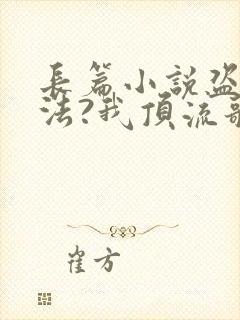 長篇小說盜
法?我頂流歌
崔方